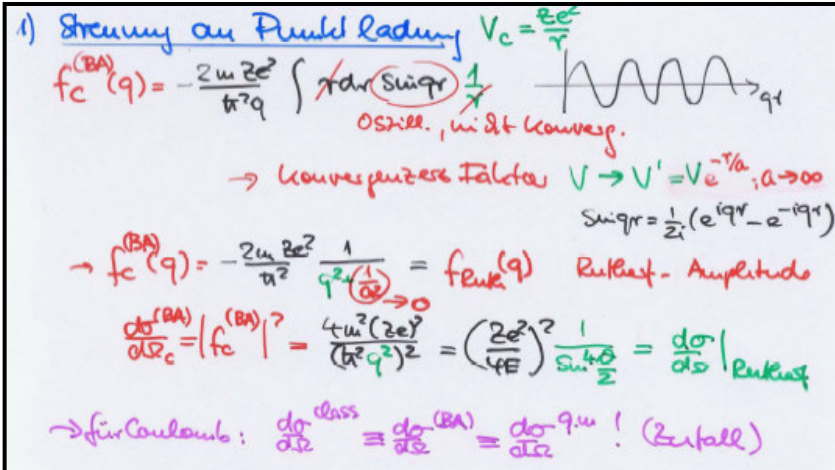 1) Streuung an Punktladung V_C = Ze²/r
f_C^(BA)(q) = - 2m Ze²/ħ²q ∫ r dr sin qr 1/r → qr
Oszill., nicht konverg.
→ konvergenzerz. Faktor V → V' = V e^(-r/a), a→∞
sin qr = 1/2i (e^(iqr) - e^(-iqr))
→ f_C^(BA)(q) = - 2m Ze²/ħ² 1/(q² + (1/a²)) = f_Ruth(q) Rutherf.-Amplitude
→ 0
dσ/dΩ_C^(BA) = |f_C^(BA)|² = 4m²(Ze)²/(ħ²q²)² = (Ze²/4E)² 1/sin⁴ θ/2 = dσ/dΩ|Rutherf
→ für Coulomb: dσ/dΩ^class = dσ/dΩ^(BA) = dσ/dΩ^q.m ! (Zufall)